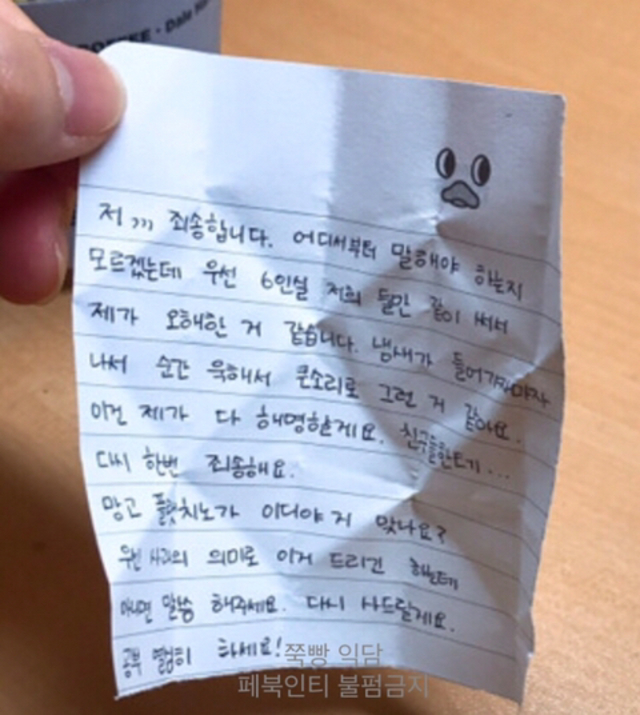 COFFEE · Dale
저,,, 죄송합니다. 어디서부터 말해야 하는지
모르겠는데 우선 6인실 저희 둘만 같이 써서
제가 오해한 거 같습니다. 냄새가 들어가자마자
나서 순간 욱해서 큰소리로 그런 거 같아요.
이건 제가 다 해명할게요. 친구들한테...
다시 한번 죄송해요.
망고 플랫치노가 이디야 거 맞나요?
우선 사과의 의미로 이거 드리긴 하는데
아니면 말씀 해주세요. 다시 사드릴게요.
공부 열심히 하세요!
쭉빵 익담
페북인티 불펌금지